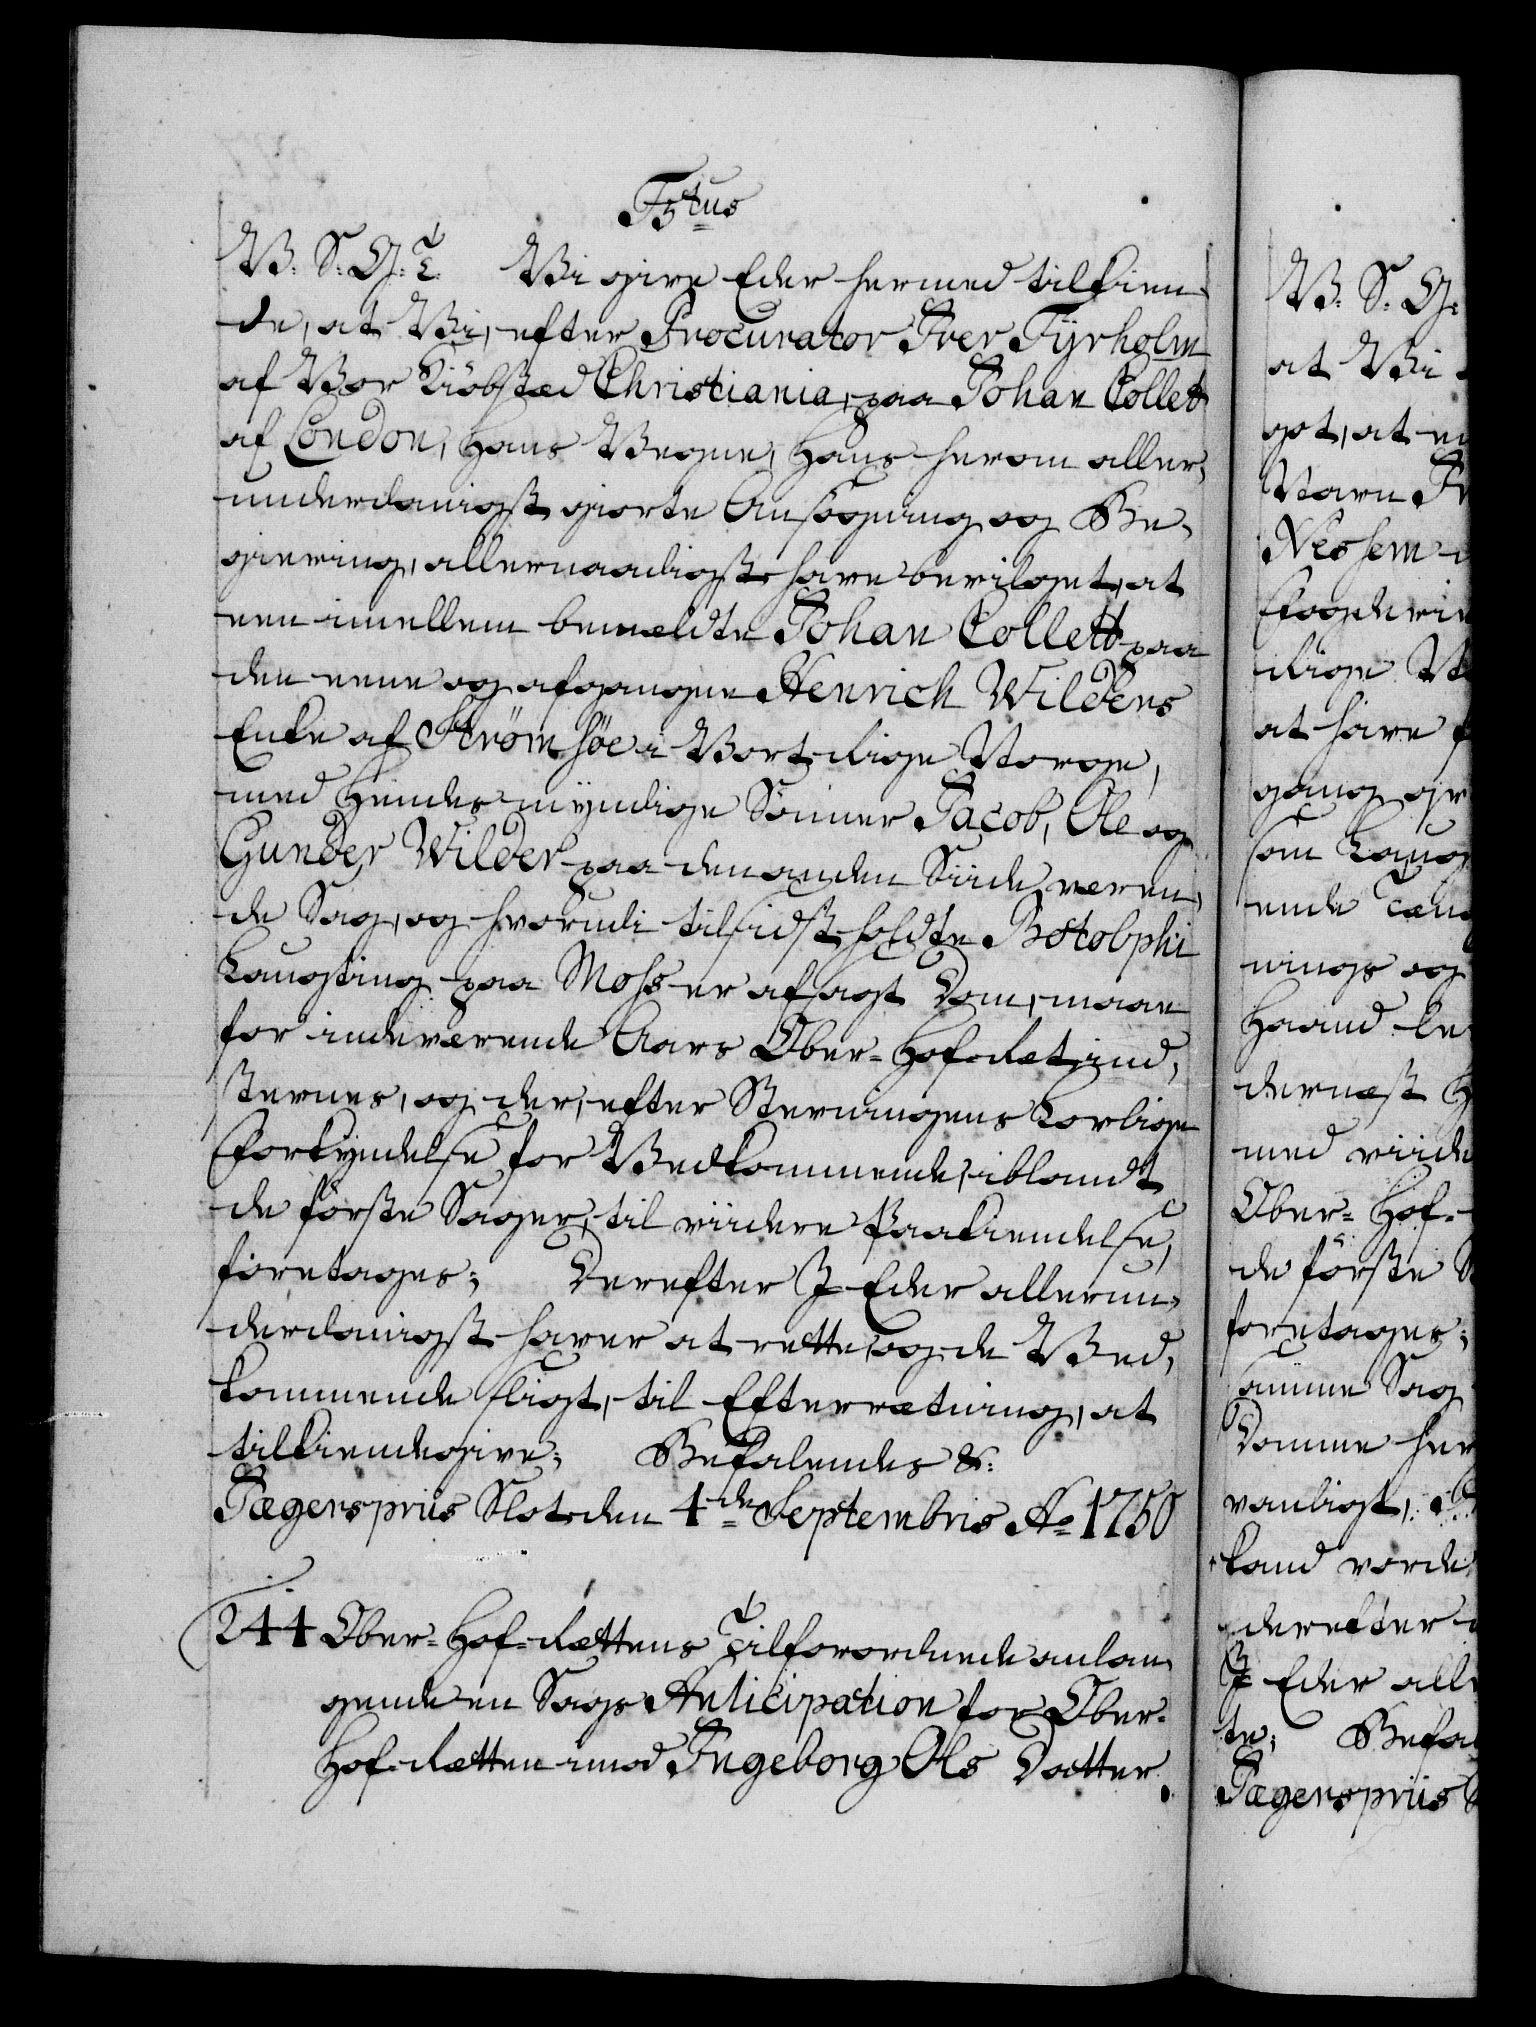 F5tus
V: S: G: T. Vi give Eder hermed tilkien-
de, at Vi, efter Procurator Iver Tyrholm
af Vor Kiöbsted Christiania, paa Johan Collett
af London, Hans Vegne, Hans herom aller-
underdanigst giorte Ansøgning og Be-
giering, allernaadigst have bevilget, at
een imellem bemeldte Johan Collett paa
den eene og afgangne Henrich Wilders
Enke af Strömsöe i Vort Rige Norge,
med Hendes myndige Sønner Jacob, Ole og
Gunder Wilder paa den anden Siide veren-
de Sag, og hvorudi til sidstholdte Botolphi
Laugting paa Mohs er afsagt Dom, maae
for indeværende Aars Ober-Hof-Ret ind-
stevnes, og der, efter Stevningens Lovlige
Forkyndelse for Vedkommende, iblandt
de förste Sager, til viidere Paakiendelse,
foretages; Derefter I Eder allerun-
derdanigst haver at rette, og de Ved-
kommende sligt, til Efterretning, at
tilkiendegive; Befalendes &:
Jægerspriis Slot den 4de Septembris Ao 1750
244 Ober-Hof-Rettens Tilforordnede anlan-
gende en Sags Anticipation for Ober-
Hof-Retten imod Ingeborg Ols Datter.
V: S: G:
at Vi
got, at en
Navn
Nessem
Fogderie
Rige N
at have
gang
som Laug
ende
nings og
Haand
dernest
med viide
Ober-Hof-
de förste
foretages;
samme Sag
Domme her
vanligt,
kand vorde
derefter
I Eder alle
te; Befal
Jægerspriis